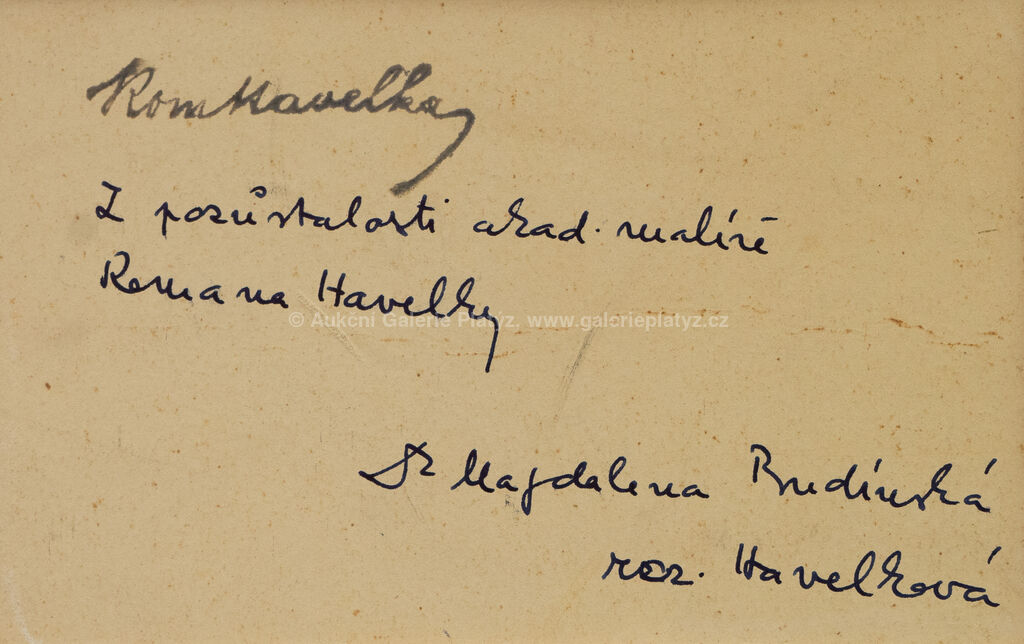 Rom Havelka
Z pozůstalosti akad. malíře
Romana Havelky
© Aukční Galerie Platýz, www.galerieplatyz.cz
Dr Magdalena Budínská
roz. Havelková